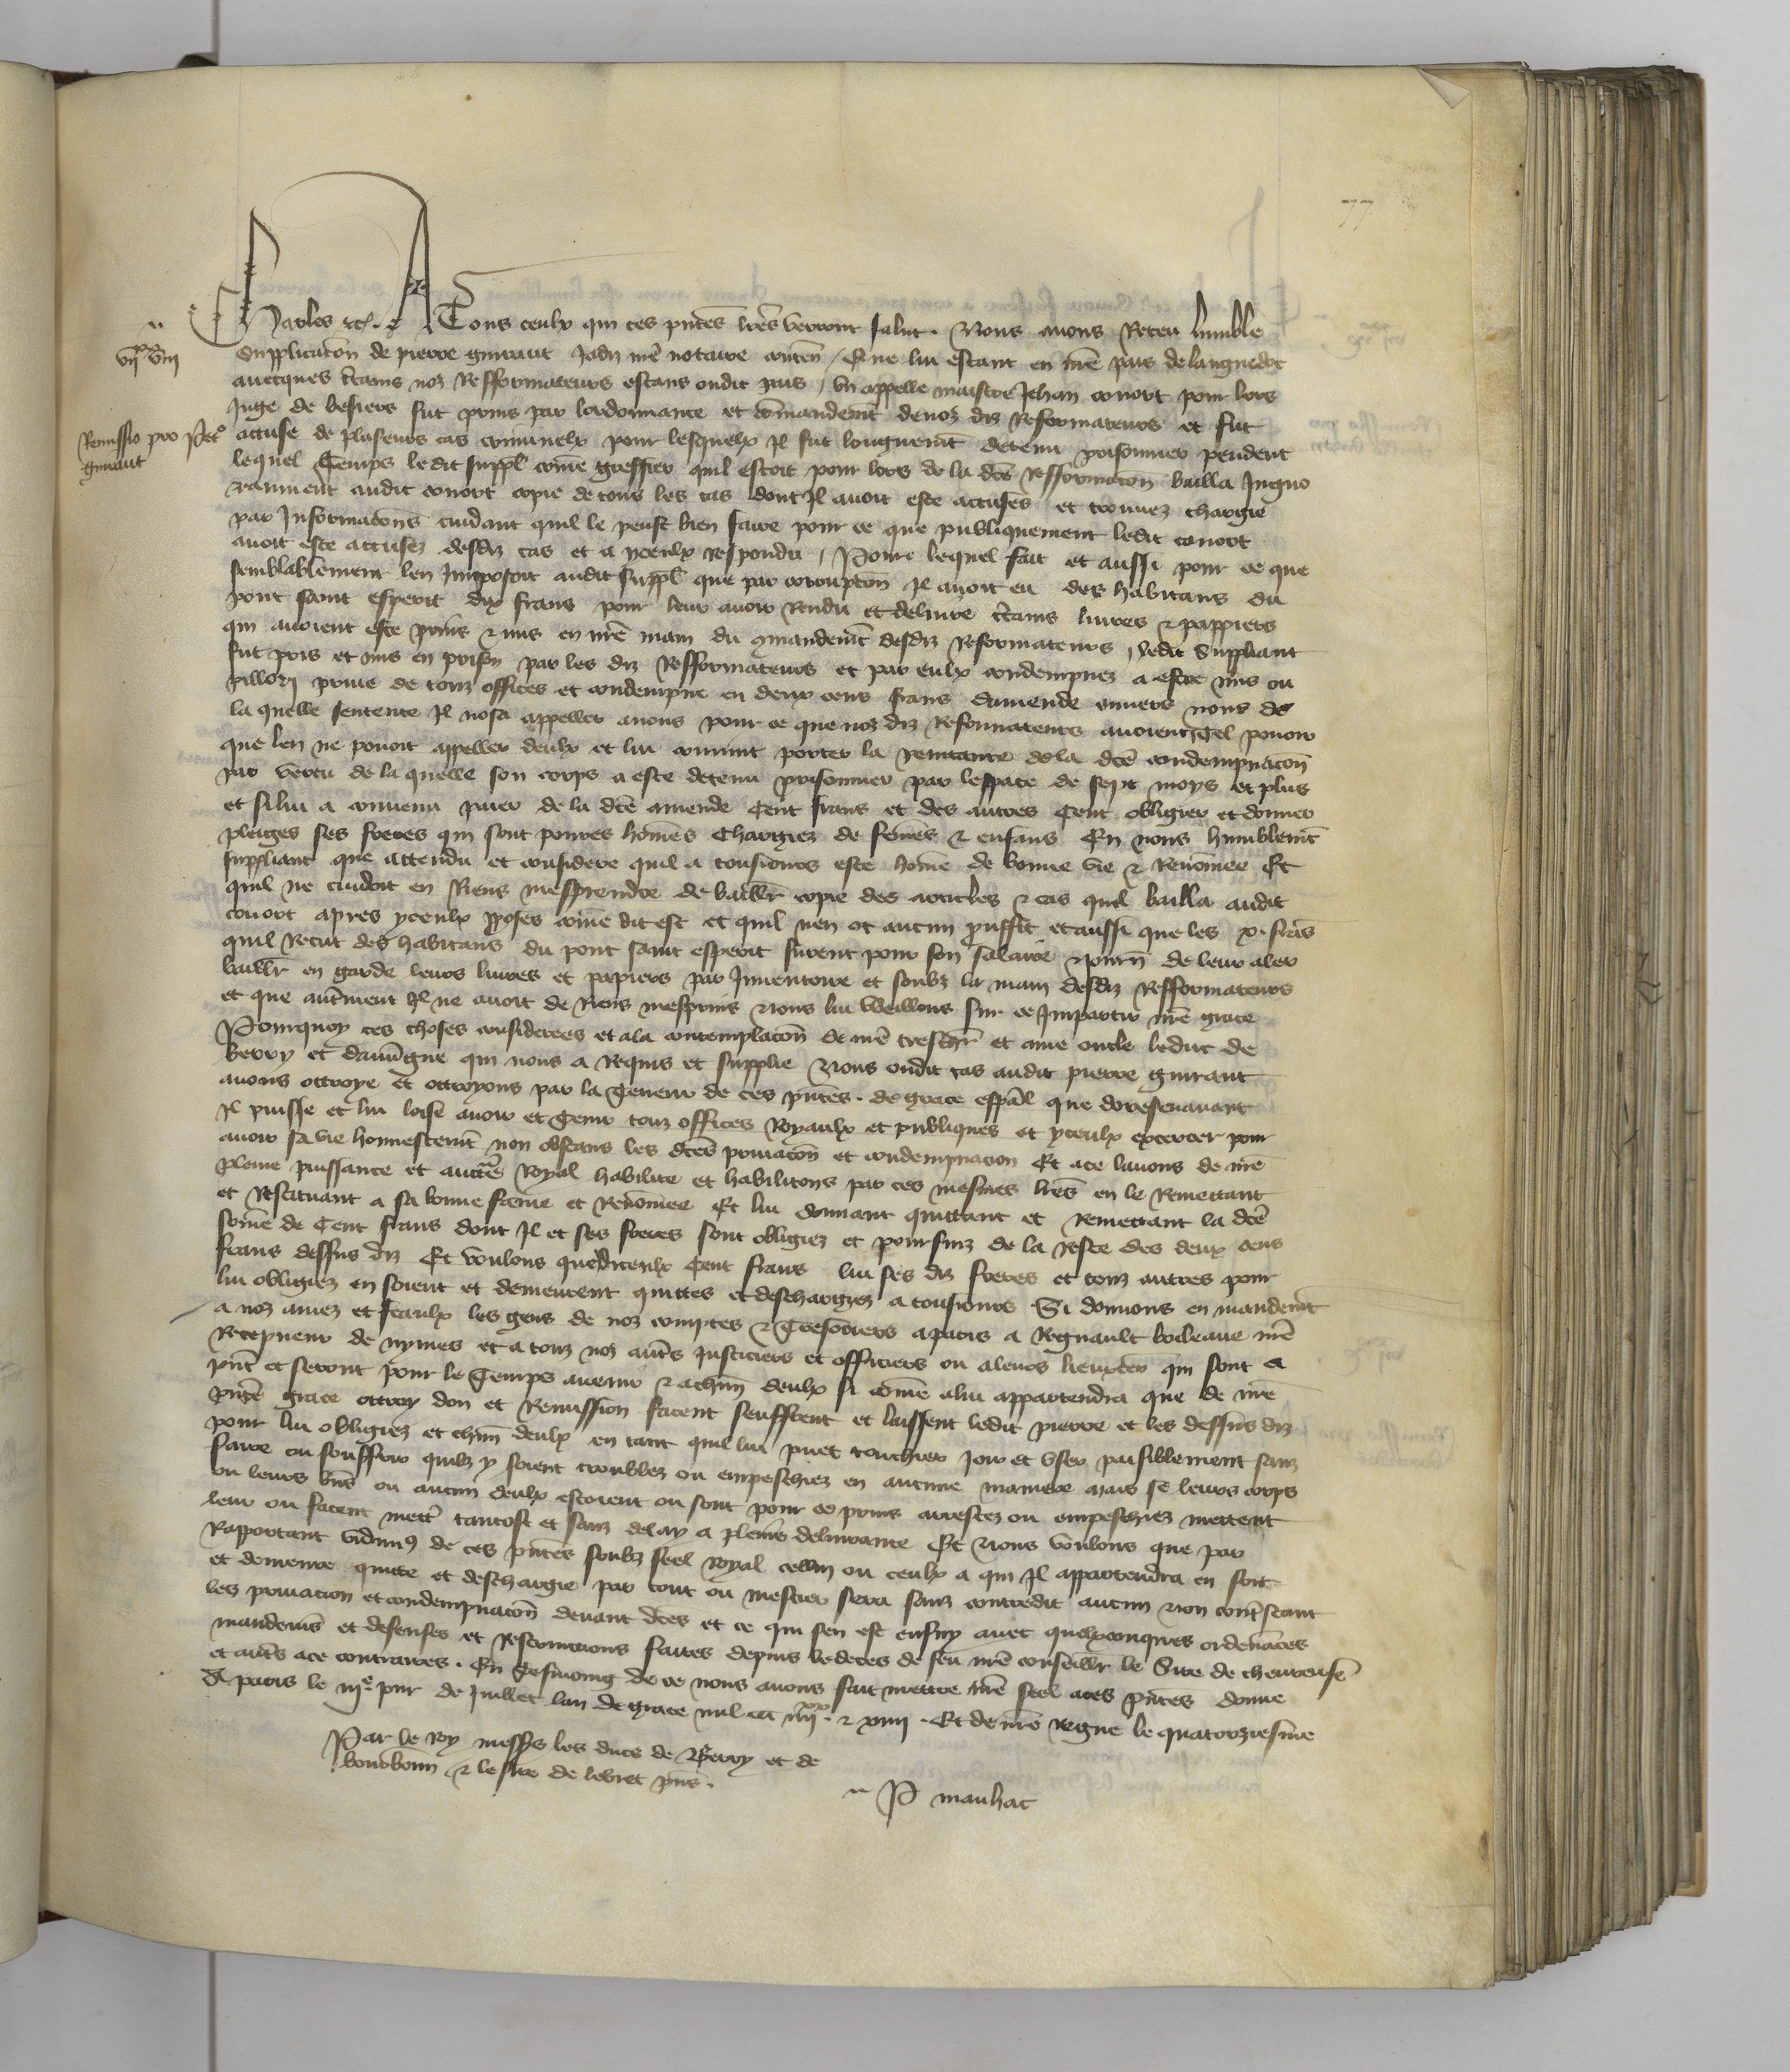 77
Charles etc. A Tous ceulx qui ces pñtes lrẽs verront salut. Nous avons Receu humble
vii^xx viii
Supplicacõn de pierre guiraut Jadiz nrẽ notaire contẽn / Que lui estant en nrẽ pais de languedoc
avecques cẽrtains noz Refformateurs estans oudit pais / un appelle maistre Jehan covort pour lors
Juge de besiers fut prins par lordonnance et cõmandemt̃ de noz diz Reformateurs et fut
Remissio pro Petº
guiraut
accuse de pluseurs cas criminelx pour lesquelx Jl fut longuemt̃ detenu prisonnier pendent
lequel Temps le dit suppl̃ cõme greffier quil estoit pour lors de la dcẽ Refformacõn bailla Jngno
ranment audit covort copie de tous les cas dont Jl avoit este accusés et trouvez chargie
par Informacõns cuidant quil le peust bien faire pour ce que publiquement ledit covort
avoit este accusez desdiz cas et a yceulx respondu / Pour lequel fait et aussi pour ce que
semblablement len Jmposoit audit suppl̃ que par corrupcõn Jl avoit eu des habitans du
pont saint esperit dix frans pour leur avoir rendu et delivre cẽrtains livres & pappiers
qui avoient este prins & mis en nrẽ main du cõmandemt̃ desdiz Reformateurs / ledit Suppliant
fut pris et mis en prison par les diz Refformateurs et par eulx condempnez a estre mis ou
pillory prive de touz offices et condempne en deux cens frans damende envers nous de
la quelle sentence Jl nosa appeller avons pour ce que noz diz Reformateurs avoient tel povoir
que len ne povoit appeller deulx et lui convint porter la penitance de la dcẽ condempnacõn
par vertu de la quelle son corps a este detenu prisonnier par lespace de sept moys et plus
et si lui a convenu paier de la dcẽ amende Cent frans et des autres Cent obligier et donner
pleiges ses freres qui sont povres hõmes Chargiez de fẽmes & enfans En nous humblemt̃
suppliant que attendu et considere quil a tousiours este hõme de bonne vie & Renõmee Et
quil ne cuidoit en Riens mesprendre de bailler copie des articles & cas quil bailla audit
covort apres yceulx pposes cõme dit est et quil nen ot aucun prffit et aussi que les x. frãs
quil Recut des habitans du pont saint esperit furent pour son salaire & pour de leur aler
baillr̃ en garde leurs livres et papiers par Jnventoire et soubz la main desdiz Refformateurs
et que autrment Jl ne avoit de Riens mesprins nous lui vueillons sur ce Jmpartir nrẽ grace
Pourquoy ces choses considerees et ala contemplacõn de nrẽ treschr̃ et ame oncle leduc de
berry et dauvr̃gne qui nous a Requis et supplie Nous oudit cas audit pierre guiraut
avons ottroye et ottroyons par la Teneur de ces pñtes. de grace espãl que doresenavant
Jl puisse et lui loise avoir et Tenir touz offices Royaulx et publiques et yceulx exercer pour
avoir sa vie honnestemt̃ non obstans les dcẽs privacõn et condempnacion Et ace lavons de nrẽ
pleine puissance et auctrẽ Royal habilite et habilitons par ces mesmes lrẽs en le Remettant
et Restituant a sa bonne fame et Renõmee Et lui donnant quittant et Remettant la dcẽ
sõme de Cent frans dont Jl et ses freres sont obligiez et poursuiz de la Reste des deux cens
frans dessus diz Et voulons que diceulx Cent frans lui ses diz freres et touz autres pour
lui obligiez en soient et demeurent quittes et deschargiez a tousiours Si donnons en mandemt̃
a noz amez et feaulx les gens de noz comptes & Tresoriers aparis a Regnault boileaue nrẽ
Receveur de nymes et a touz noz autrẽs Justiciers et officiers ou aleurs lieuxten qui sont a
pñt et seront pour le Temps avenir & achũn deulx si cõme alui appartendra que de nrẽ
pñte grace ottroy don et Remission facent seuffrent et laissent ledit pierre et les dessus diz
pour lui obligiez et chũn deulx en tant quil lui puet touchier Joir et user paisiblement sanz
faire ou souffrir quilz y soient troublez ou empeschiez en aucune maniere mais se leurs corps
ou leurs biẽs ou aucun deulx estoient ou sont pour ce prins arrestez ou empeschiez mettent
leur ou facent mettr̃ tantost et sanz delay a pleine delivrance Et Nous voulons que par
Rapportant vidimꝰ de ces pñtes soubz seel Royal cellui ou ceulx a qui Jl appartendra en soit
et demeure quitte et deschargie par tout ou mestier sera sanz contredit aucun non contrestant
les privacion et condempnacõn devant dcẽs et ce qui sen est ensuy avec quelxconques ordenãces
mandemẽs et defenses et Restrincions faites depuis ledeces de feu nrẽ conseillr̃ le Sire de chevreuse
et autrẽs ace contraires. En Tesmoing de ce nous avons fait mettre nrẽ seel aces pñtes donne
A paris le iijᵉ jour de Juillet lan de grace mil ccc iiij^xx & xiiij. Et de nrẽ Regne le quatorziesme
Par le Roy messrs̃ les ducs de Berry et de
bourbonñ & le sire de lebret pñs.
P manhac